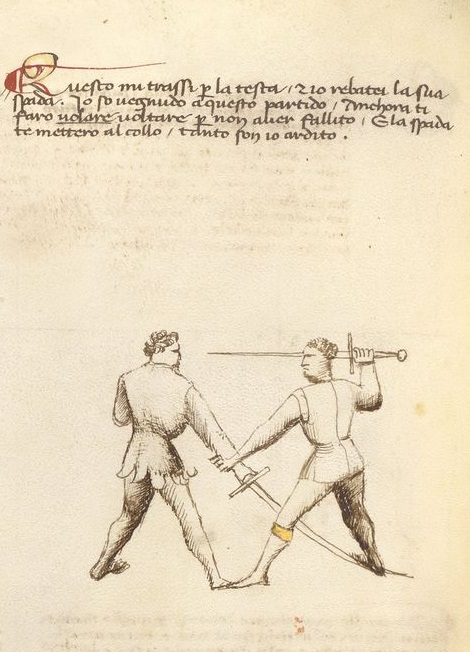 Questo mi trassi p la testa / z io rebatei la sua
spada. Io so vegnudo a questo partido / Anchora ti
faro volare voltare p non aver fallito / E la spada
te mettero al collo / tanto son io ardito .